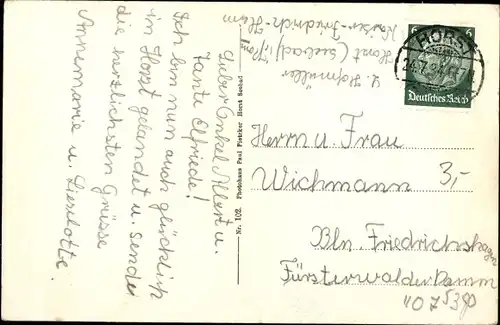 Lieber Onkel Albert u.
Tante Elfriede!
Ich bin nun auch glücklich
in Horst gelandet u. sende
die herzlichsten Grüsse
Annemarie u. Lieselotte.
Nr. 102. Photohaus Paul Pietzker Horst Seebad
Horst (Seebad) i/Pom
Kaiser-Friedrich-Heim
HORST
6 6
Deutsches Reich
Herrn u. Frau
Wichmann
3,-
Bln. Friedrichshagen
Fürstenwalder Damm